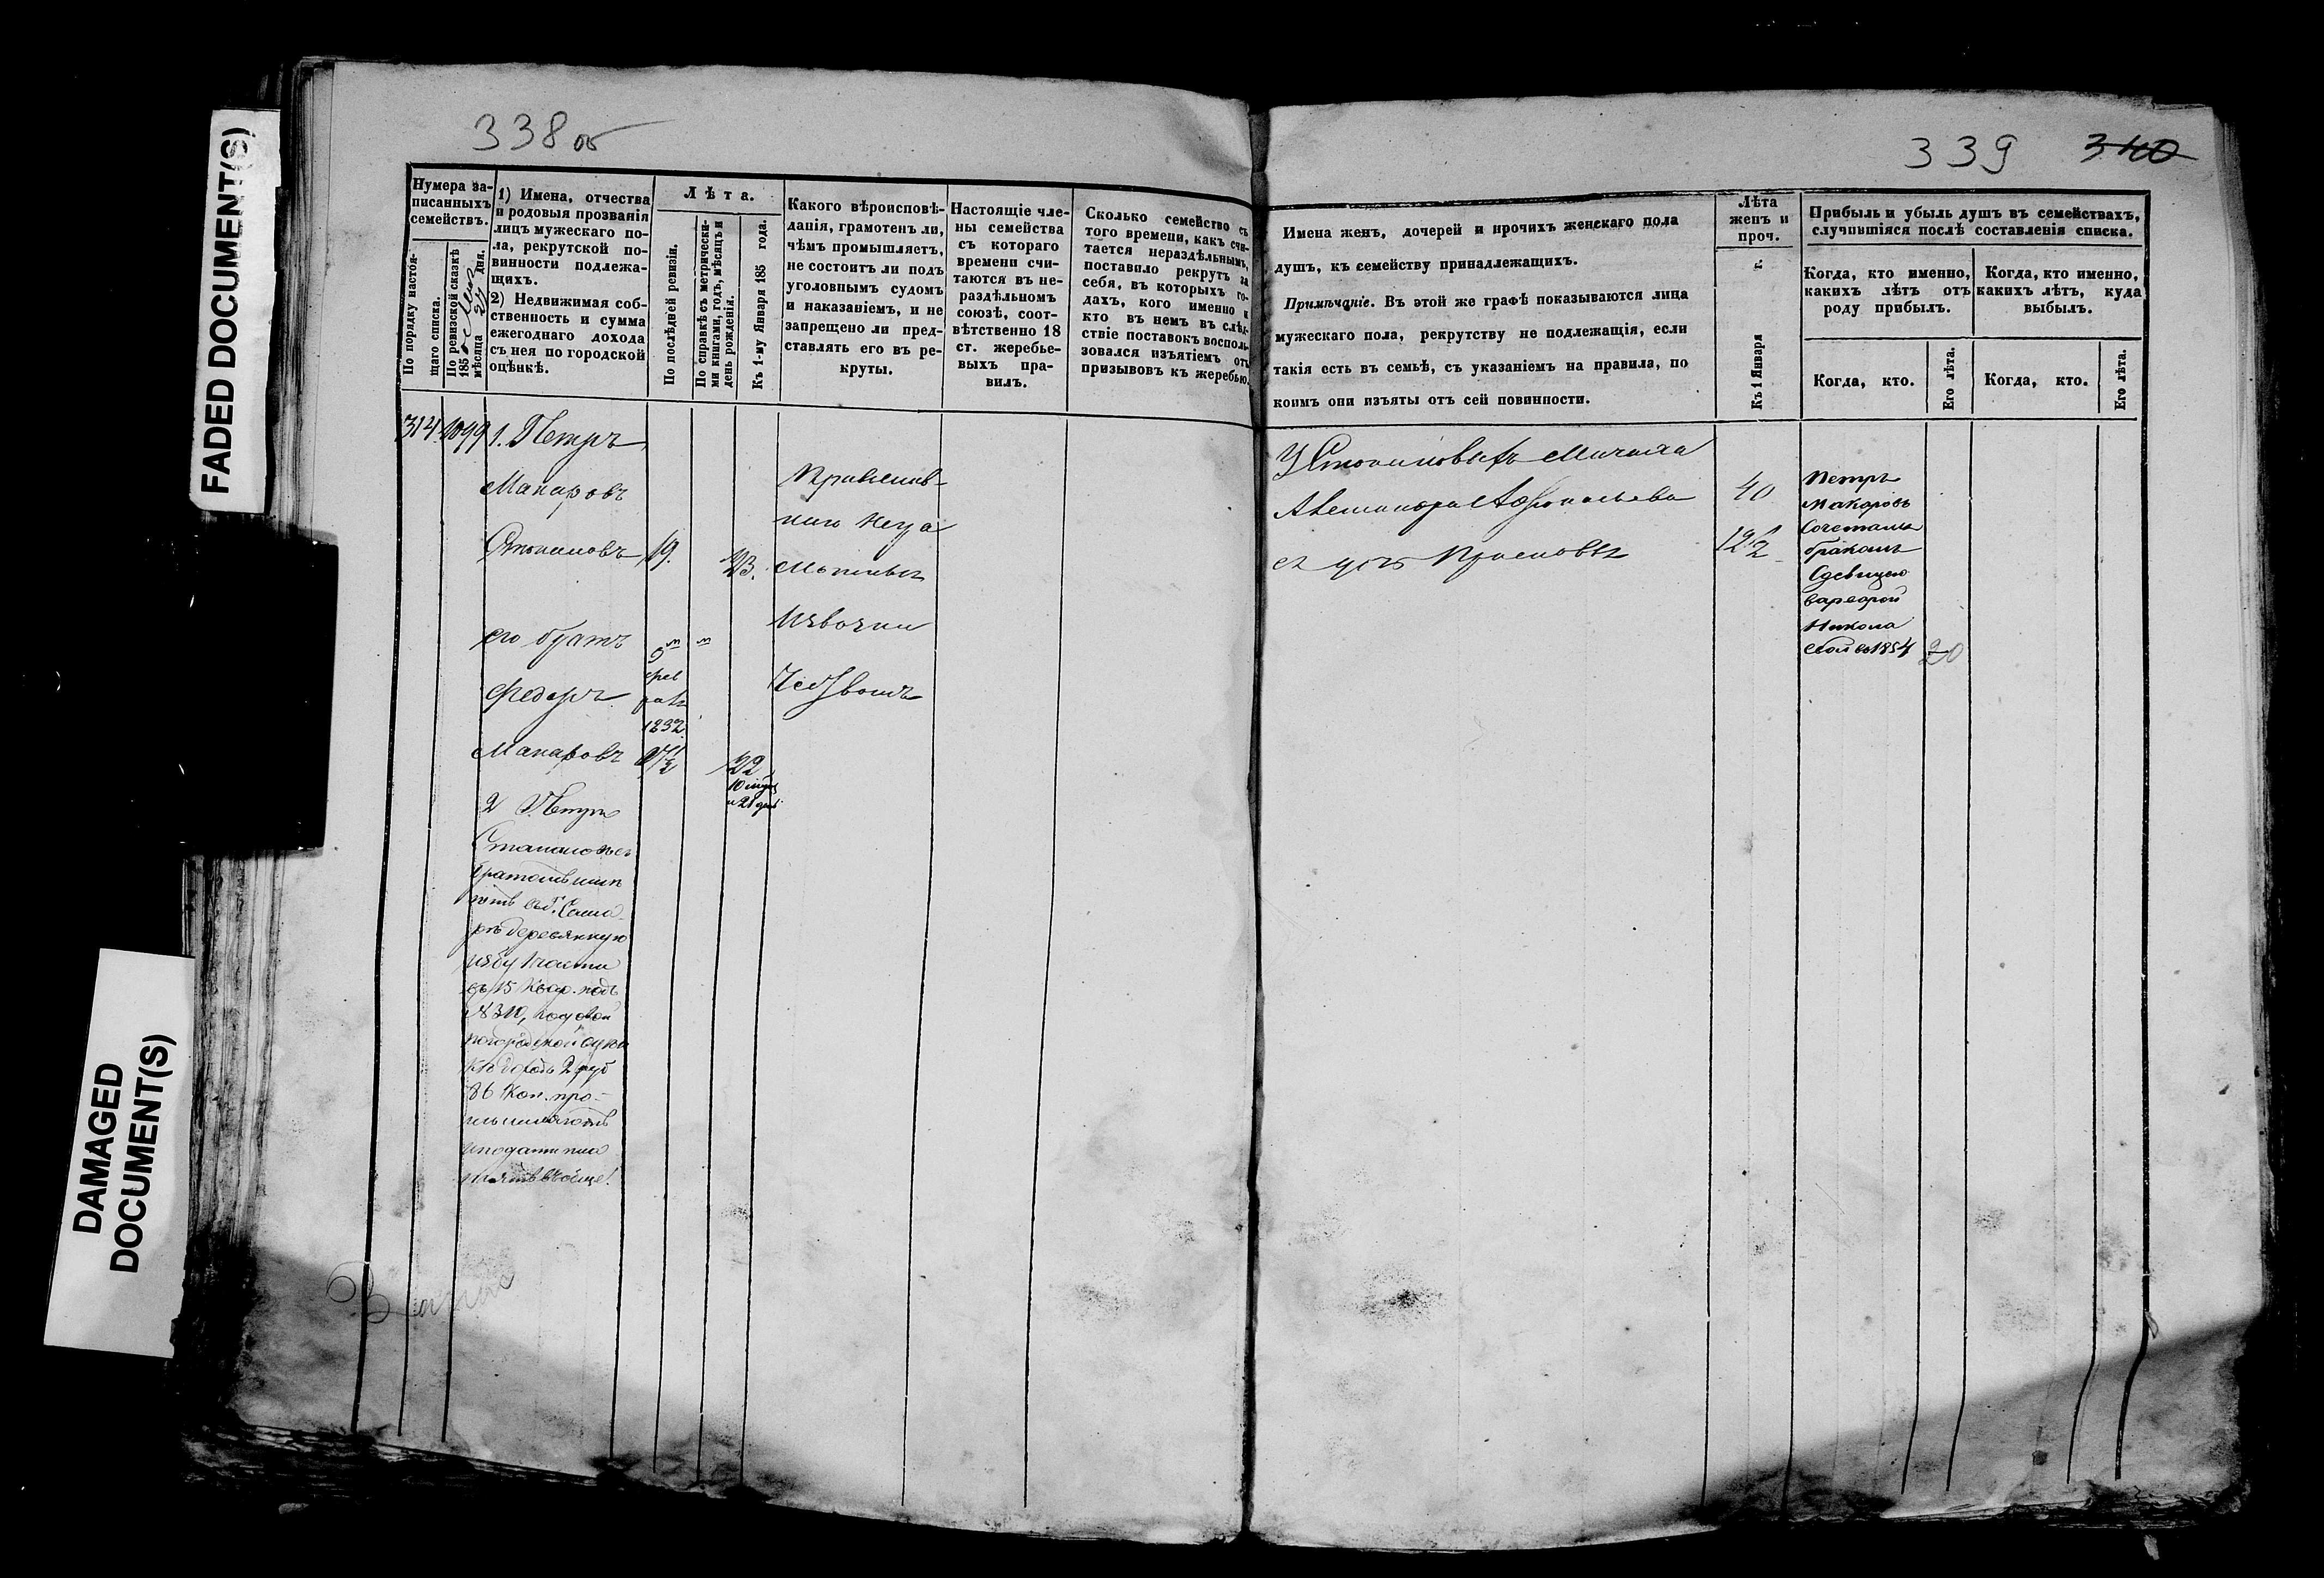 FADED DOCUMENT(S)
DAMAGED
DOCUMENT(S)
338 об
Нумера за-
писанныхъ
семействъ.
По порядку настоя-
щаго списка.
По ревизской сказкѣ
185
мѣсяца 27 дня.
1) Имена, отчества
и родовыя прозванія
лицъ мужескаго по-
ла, рекрутской по-
винности подлежа-
щихъ.
2) Недвижимая соб-
ственность и сумма
ежегоднаго дохода
съ нея по городской
оцѣнкѣ.
Лѣта.
По послѣдней ревизіи.
По справкѣ съ метрически-
ми книгами, годъ, мѣсяцъ и
день рожденія.
Къ 1-му Января 185 года.
Какого вѣроисповѣ-
данія, грамотенъ ли,
чѣмъ промышляетъ,
не состоитъ ли подъ
уголовнымъ судомъ
и наказаніемъ, и не
запрещено ли пред-
ставлять его въ ре-
круты.
Настоящіе чле-
ны семейства
съ котораго
времени счи-
таются въ не-
раздѣльномъ
союзѣ, соот-
вѣтственно 18
ст. жеребье-
выхъ пра-
вилъ.
Сколько семейство съ
того времени, какъ счи-
тается нераздѣльнымъ,
поставило рекрутъ за
себя, въ которыхъ го-
дахъ, кого именно и
кто въ немъ въ слѣд-
ствіе поставокъ восполь-
зовался изъятіемъ отъ
призывовъ къ жеребью.
314. 1099 1. Петръ
Макаровъ
19.
23.
его братъ
5
фев
раля
1832.
Федоръ
Макаровъ
17½
22
10 мѣс
и 21 дн.
Извозни
2 Петръ
братомъ имѣ
ютъ въ г. Сама
рѣ деревянную
избу 1 части
въ 15 квар. подъ
№ 310, годовой
по городской оцен
кѣ доходъ 2 руб
86 коп. про-
мышляютъ
и подати пла
тятъ вобще!
339 340
Имена женъ, дочерей и прочихъ женскаго пола
душъ, къ семейству принадлежащихъ.
Примѣчаніе. Въ этой же графѣ показываются лица
мужескаго пола, рекрутству не подлежащія, если
такія есть въ семьѣ, съ указаніемъ на правила, по
коимъ они изъяты отъ сей повинности.
Лѣта
женъ и
проч.
Къ 1 Января
Прибыль и убыль душъ въ семействахъ,
случившіяся послѣ составленія списка.
Когда, кто именно,
какихъ лѣтъ отъ
роду прибылъ.
Когда, кто именно,
какихъ лѣтъ, куда
выбылъ.
Когда, кто.
Его лѣта.
Когда, кто.
Его лѣта.
40
12½
Петръ
Макаровъ
Сочетался
бракомъ
Сдевицею
варварой
Никола
евой въ 1854
20